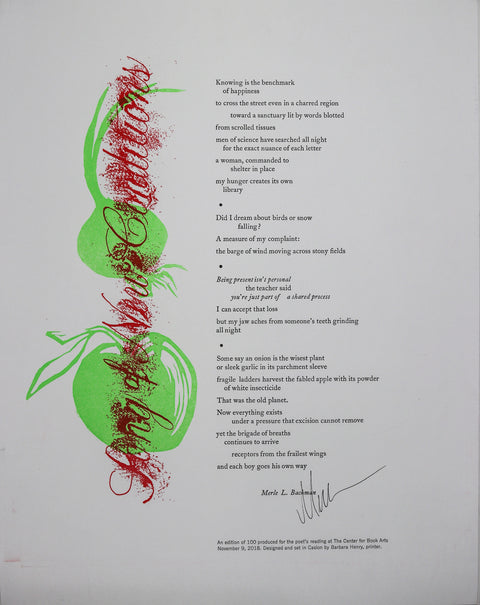 Song of New Conditions
Knowing is the benchmark
of happiness
to cross the street even in a charred region
toward a sanctuary lit by words blotted
from scrolled tissues
men of science have searched all night
for the exact nuance of each letter
a woman, commanded to
shelter in place
my hunger creates its own
library
•
Did I dream about birds or snow
falling?
A measure of my complaint:
the barge of wind moving across stony fields
•
Being present isn't personal
the teacher said
you're just part of a shared process
I can accept that loss
but my jaw aches from someone's teeth grinding
all night
•
Some say an onion is the wisest plant
or sleek garlic in its parchment sleeve
fragile ladders harvest the fabled apple with its powder
of white insecticide
That was the old planet.
Now everything exists
under a pressure that excision cannot remove
yet the brigade of breaths
continues to arrive
receptors from the frailest wings
and each boy goes his own way
Merle L. Bachman
An edition of 100 produced for the poet's reading at The Center for Book Arts
November 9, 2018. Designed and set in Caslon by Barbara Henry, printer.